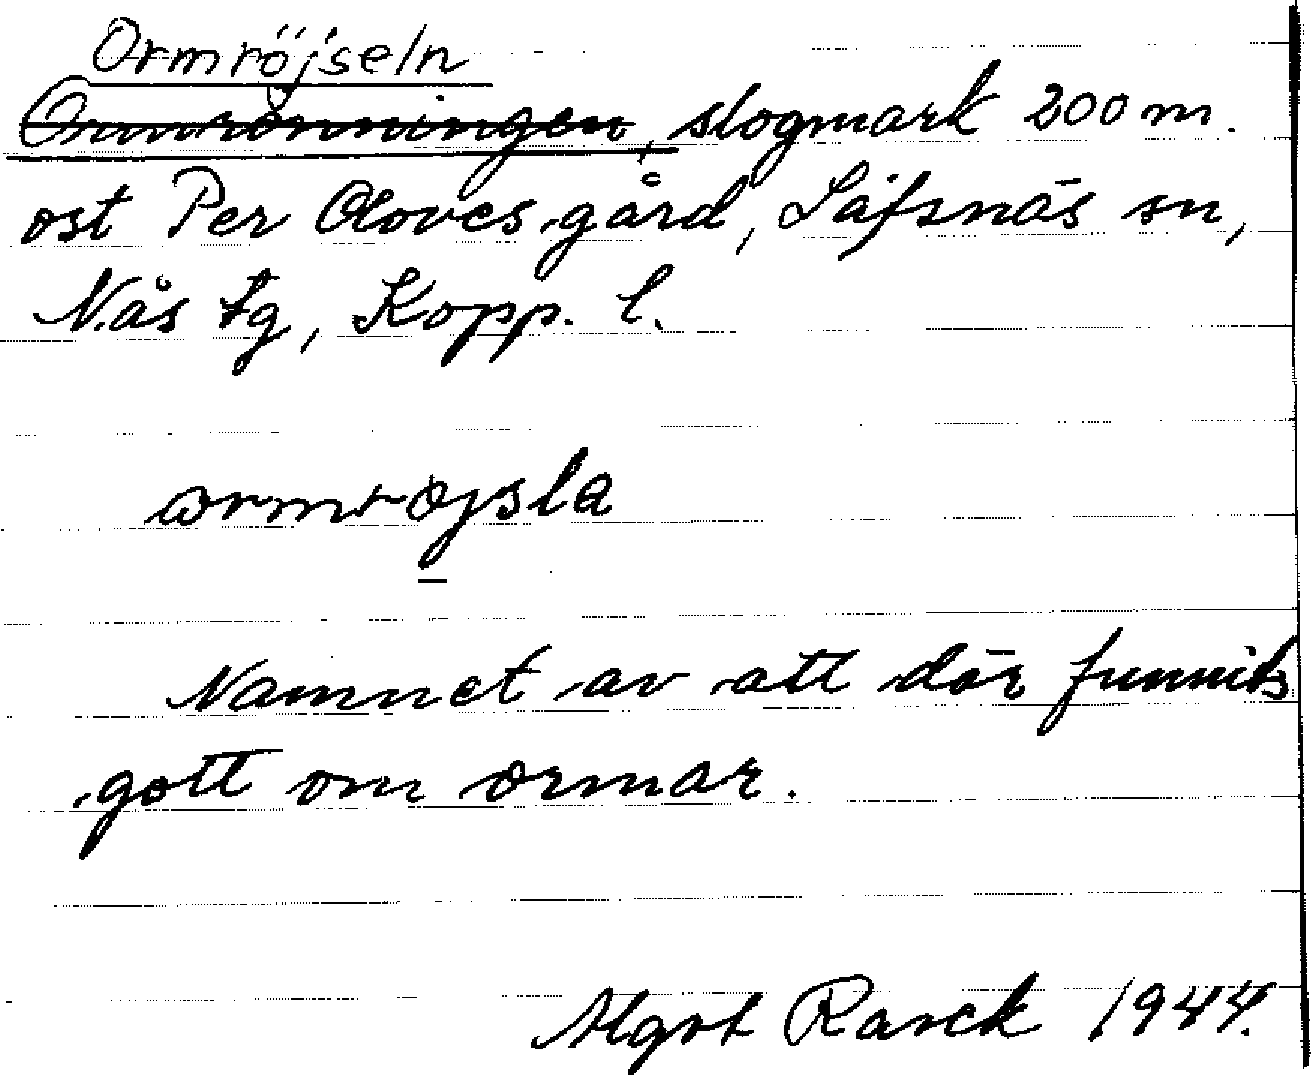 Ormröjseln
Ormrönningen, slogmark 200 m.
ost Per Oloves gård, Säfsnäs sn,
Nås tg, Kopp. l.
ormröjsla
Namnet av att där funnits
gott om ormar.
Algot Rarck 1944.